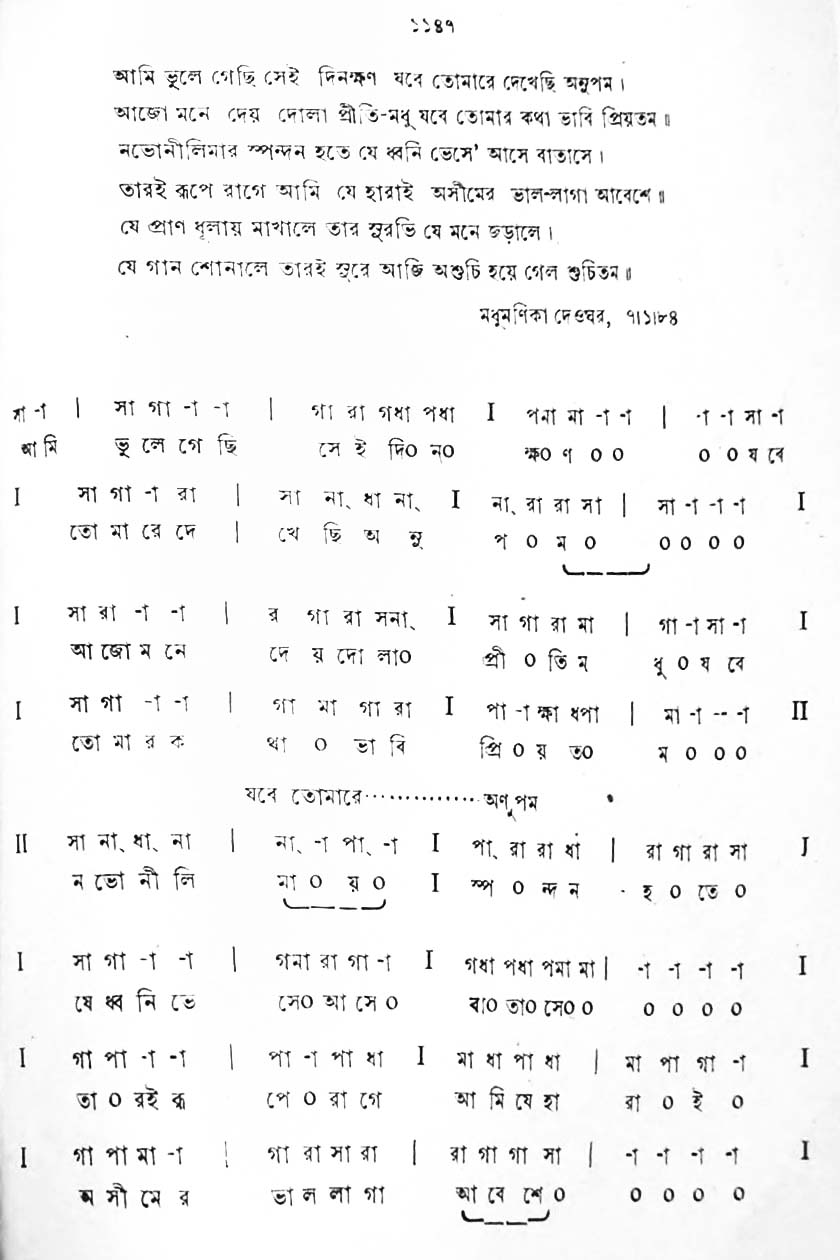 ১১৪৭
আমি ভুলে গেছি সেই দিনক্ষণ যবে তোমারে দেখেছি অনুপম।
আজো মনে দেয় দোলা প্রীতি-মধু যবে তোমার কথা ভাবি প্রিয়তম॥
নভোনীলিমার স্পন্দন হতে যে ধ্বনি ভেসে' আসে বাতাসে।
তারই রূপে রাগে আমি যে হারাই অসীমের ভাল-লাগা আবেশে॥
যে প্রাণ ধূলায় মাখালে তার সুরভি যে মনে জড়ালে।
যে গান শোনালে তারই সুরে আজি অশুচি হয়ে গেল শুচিতম॥
মধুমণিকা দেওঘর, ৭।১।৮৪
সা -া | সা গা -া -া | গা রা গধা পধা I পনা মা -া -া | -া -া সা -া
আমি ভু লে গে ছি সে ই দি০ ন০ ক্ষ০ ণ ০ ০ ০ ০ য বে
I সা গা -া রা | সা না্ ধা না্ I না্ রা রা সা | সা -া -া -া I
তো মা রে দে | খে ছি অ নু প ০ ম ০ ০ ০ ০ ০
I সা রা -া -া | র গা রা সনা্ I সা গা রা মা | গা -া সা -া I
আ জো ম নে দে য় দো লা০ প্রী ০ তি ম ধু ০ য বে
I সা গা -া -া | গা মা গা রা I পা -া ক্ষা ধপা | মা -া -- -া II
তো মা র ক থা ০ ভা বি প্রি ০ য় ত০ ম ০ ০ ০
যবে তোমারে.............. অণুপম
II সা না্ ধা্ না | না্ -া পা্ -া I পা্ রা রা ধা | রা গা রা সা I
ন ভো নী লি মা ০ য় ০ I স্প ০ ন্দ ন হ ০ তে ০
I সা গা -া -া | গনা রা গা -া I গধা পধা পমা মা | -া -া -া -া I
যে ধ্ব নি ভে সে০ আ সে ০ বা০ তা০ সে০ ০ ০ ০ ০ ০
I গা পা -া -া | পা -া পা ধা I মা ধা পা ধা | মা পা গা -া I
তা ০ রই রূ পে ০ রা গে আ মি যে হা রা ০ ই ০
I গা পা মা -া | গা রা সা রা | রা গা গা সা | -া -া -া -া I
অ সী মে র ভা ল লা গা আ বে শে ০ ০ ০ ০ ০